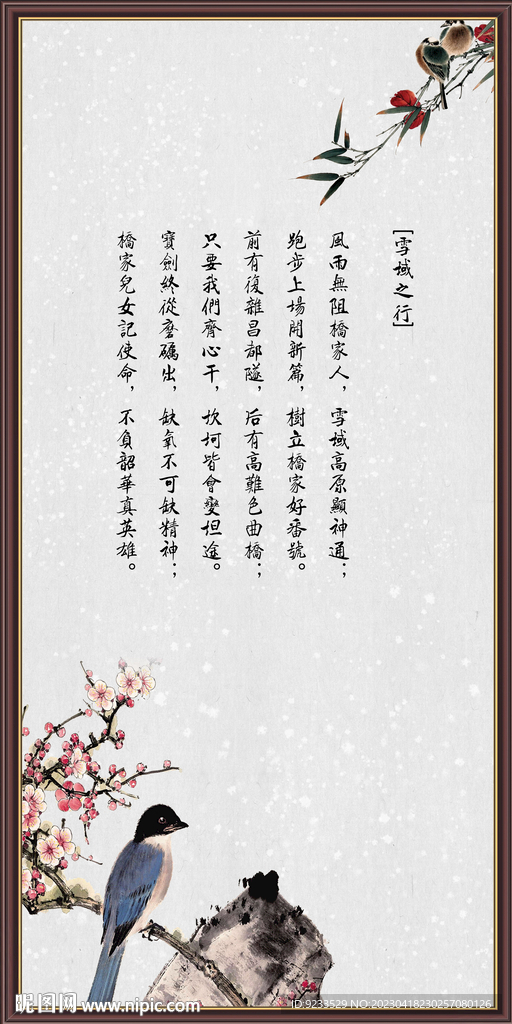 [雪域之行]
風雨無阻橋家人，雪域高原顯神通；
跑步上場開新篇，樹立橋家好番號。
前有復雜昌都隧，后有高難色曲橋；
只要我們齊心干，坎坷皆會變坦途。
寶劍終從磨礪出，缺氧不可缺精神；
橋家兒女記使命，不負韶華真英雄。
昵图网 www.nipic.com
ID:9233529 NO:20230418230257080126